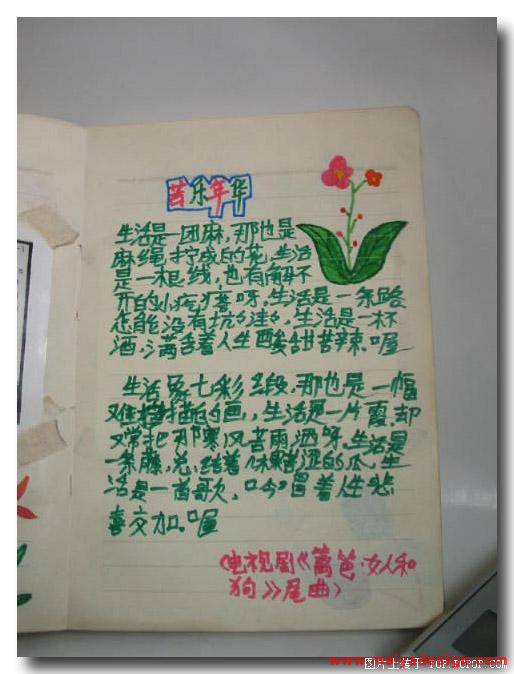 苦乐年华
生活是一团麻,那也是
麻绳拧成的花,生活
是一根线,也有解不
开的小疙瘩呀,生活是一条路
怎能没有坑坑洼洼,生活是一杯
酒,满含着人生酸甜苦辣,喔
生活象七彩缎,那也是一幅
难描的画,生活是一片霞,却
又常把那寒风苦雨洒呀,生活是
一条藤,总结着几颗苦涩的瓜,生
活是一首歌,吟唱着人生悲
喜交加,喔
《电视剧《篱笆·女人和
狗》尾曲》
图片上传于 PoP.corp.com